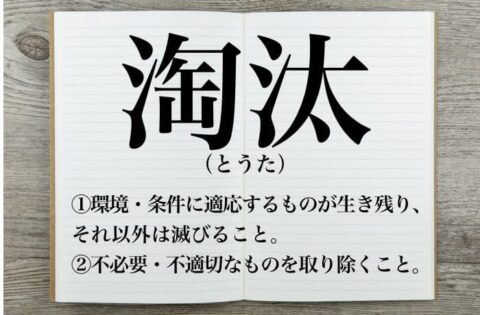 淘汰
（とうた）
①環境・条件に適応するものが生き残り、
それ以外は滅びること。
②不必要・不適切なものを取り除くこと。